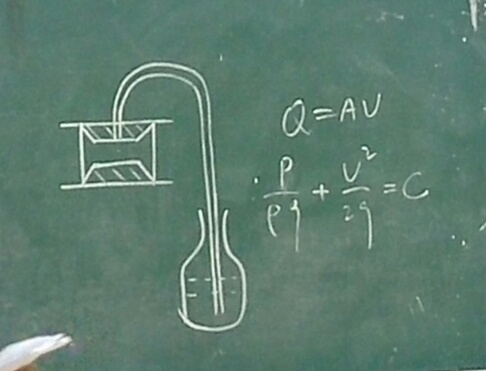 Q=AV
P/ρg + V²/2g = C